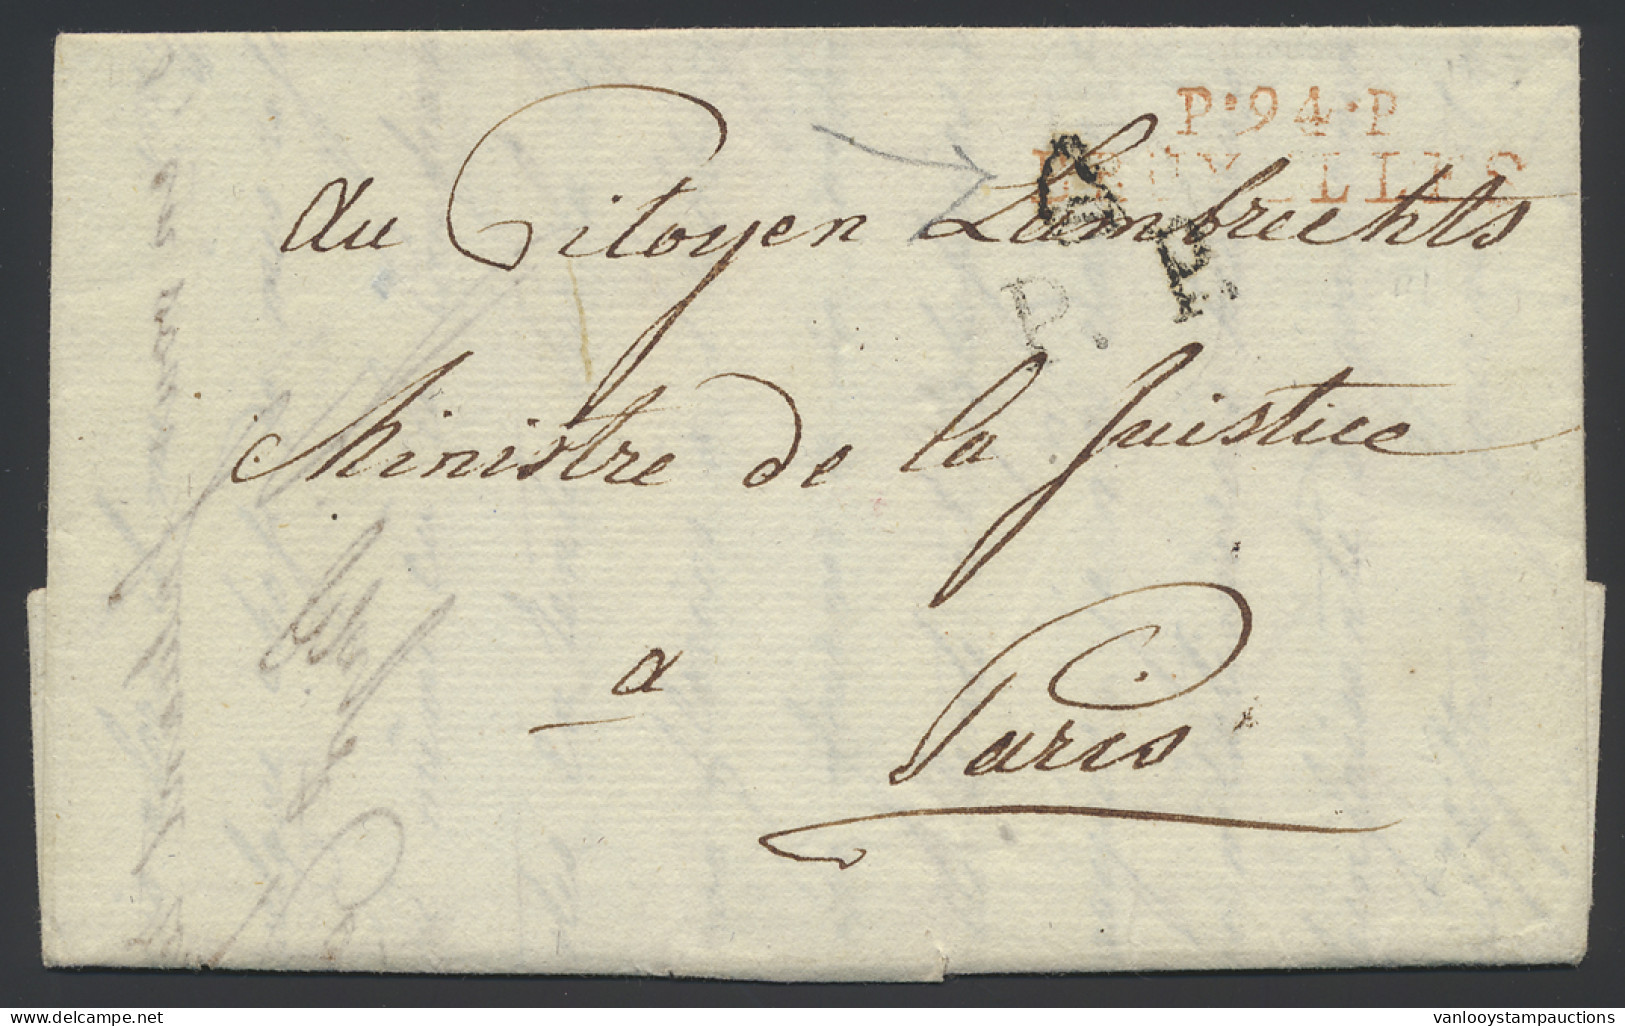 P.94.P
BRUXELLES
au Citoyen Lambrechts
P. P.
Ministre de la Juistice
a
Paris
www.delcampe.net
vanlooystampauctions